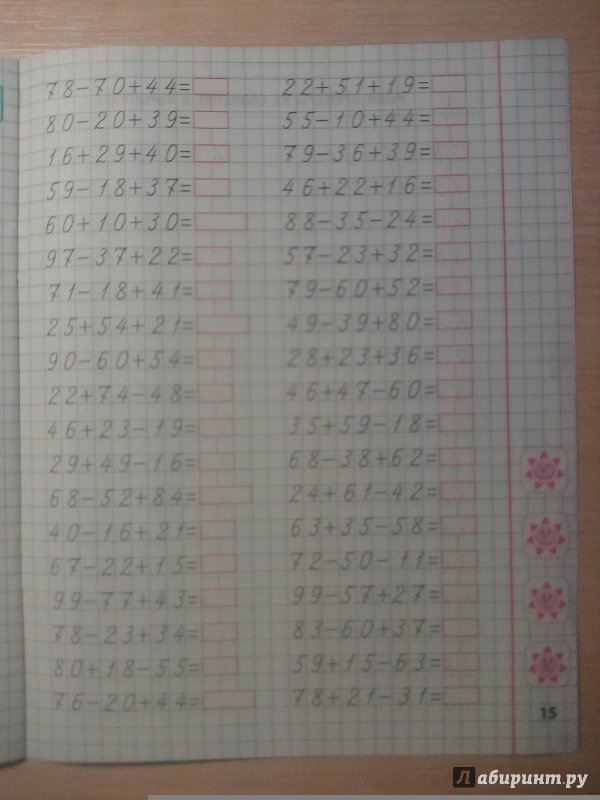 78-70+44=
80-20+39=
16+29+40=
59-18+37=
60+10+30=
97-37+22=
71-18+41=
25+54+21=
90-60+54=
22+74-48=
46+23-19=
29+49-16=
68-52+84=
40-16+21=
67-22+15=
99-77+43=
78-23+34=
80+18-55=
76-20+44=
22+51+19=
55-10+44=
79-36+39=
46+22+16=
88-35-24=
57-23+32=
79-60+52=
49-39+80=
28+23+36=
46+47-60=
35+59-18=
68-38+62=
24+61-42=
63+35-58=
72-50-11=
99-57+27=
83-60+37=
59+15-63=
78+21-31=
15
Лабиринт.ру